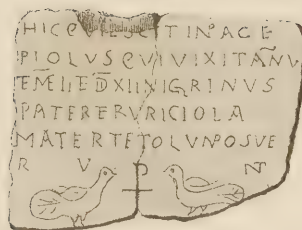 HIC TINPACE
PIOLVSQVIVIXITANV
EMEIIEDXIINIGRINVS
PATERERVRICIOLA
MATERTETOLVNPOSVE
R V NT